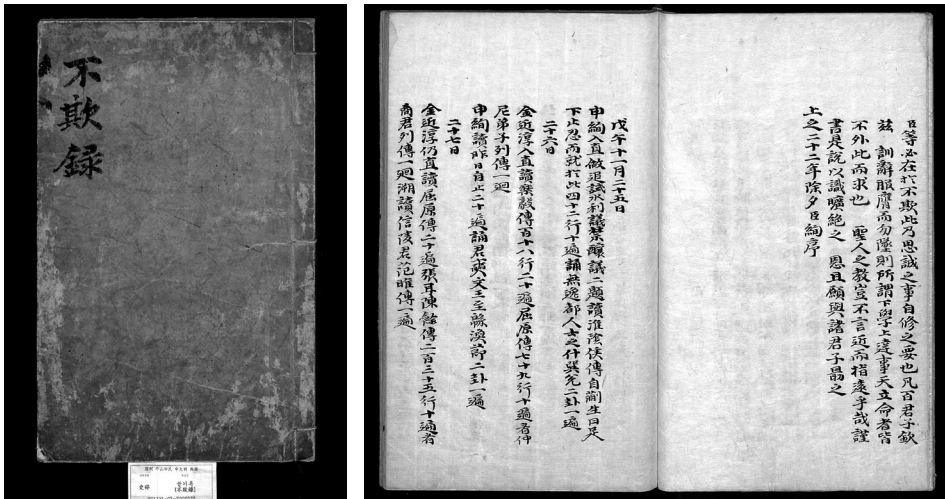 不欺録
臣等必在於不欺此乃思誠之事自修之要也凡百君子欽
玆 訓辭服膺而勿墜則所謂下學上達事天立命者皆
不外此而求也 聖人之敎豈不言近而指遠乎哉謹
書是說以識曠絶之 恩且願與諸君子勗之
上之二十二年除夕臣絢序
戊午十一月二十五日
申絢入直做追議水利議禁釀議二題讀淮陰侯傳自蒯生曰足
下止忍而就於此四十二行十遍誦無逸都人士之什巽兌二卦一遍
二十六日
金近淳入直讀樂毅傳百十六行二十遍屈原傳七十九行十遍看仲
尼弟子列傳一廻
申絢讀昨日自止二十遍誦君奭文王至緜渙節二卦一遍
二十七日
金近淳仍直讀屈原傳二十遍張耳陳餘傳二百三十五行十遍看
商君列傳一廻溯讀信陵君范雎傳一遍